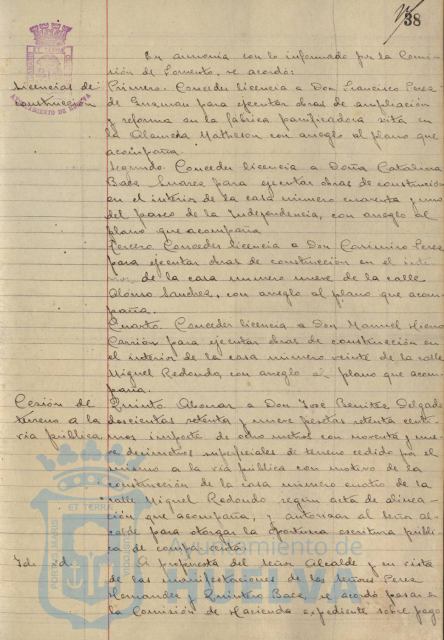 38
En armonía con lo informado por la Comi-
sión de Fomento, se acordó:
Licencias de
construcción
Primero. Conceder licencia a Don Francisco Perez
de Guzman para ejecutar obras de ampliación
y reforma en la fábrica panificadora sita en
la Alameda Matheson con arreglo al plano que
acompaña.
Segundo. Conceder licencia a Doña Catalina
Baez Suarez para ejecutar obras de construcción
en el interior de la casa número cuarenta y uno
del paseo de la Independencia, con arreglo al
plano que acompaña
Tercero. Conceder licencia a Don Casimiro Perez
para ejecutar obras de construcción en el inte-
rior de la casa numero nueve de la calle
Alonso Sanchez, con arreglo al plano que acom-
paña.
Cuarto. Conceder licencia a Don Manuel
Carrión para ejecutar obras de construcción en
el interior de la casa número veinte de la calle
Miguel Redondo, con arreglo al plano que acom-
paña.
Cesión de
terreno a la
vía pública
Quinto. Abonar a Don José Benitez Delgado
doscientas setenta y nueve pesetas setenta centi-
mos importe de ocho metros con noventa y nue-
ve decimetros superficiales de terreno cedido por el
mismo a la vía pública con motivo de la
construcción de la casa número cuatro de la
calle Miguel Redondo según acta de alinea-
ción que acompaña, y autorizar al señor al-
calde para otorgar la oportuna escritura públi-
ca de compa venta.
Id. id.
A propuesta del señor Alcalde y en vista
de las manifestaciones de los señores Perez
Hernandez y Quintero Baez, se acordó pasar a
la Comisión de Hacienda expediente sobre pago
AYUNTAMIENTO DE HUELVA
PORTUS MARIS
ET TERRAE
Ayuntamiento de